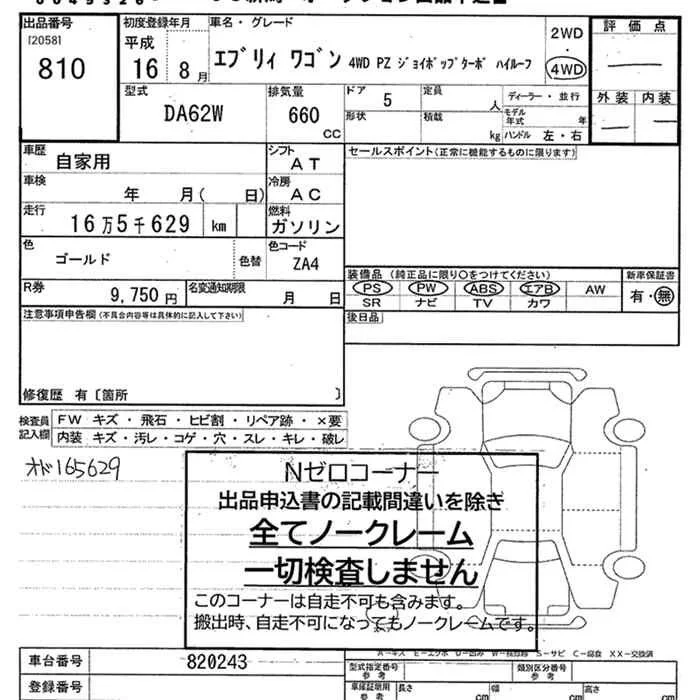 出品番号
[2058]
810
初度登録年月
平成
16 8月
車名・グレード
エブリィ ワゴン 4WD PZ ジョイポップターボ ハイルーフ
2WD
・
4WD
評価点
外装 内装
型式
DA62W
排気量
660
CC
ドア 5
定員 人
形状
積載 kg
ディーラー・並行
モデル年式 年
ハンドル 左・右
車歴
自家用
シフト
AT
セールスポイント(正常に機能するものに限ります)
車検
年 月( 日)
冷房
AC
走行
16万5千629 km
燃料
ガソリン
色
ゴールド
色替
色コード
ZA4
装備品 (純正品に限り〇をつけてください)
PS PW ABS エアB AW
SR ナビ TV カワ
新車保証書
有・無
R券
9,750 円
名変通知期限
月 日
後日品
注意事項申告欄(不具合内容等は具体的に記入して下さい)
修復歴 有〔箇所 〕
検査員
記入欄
FW キズ・飛石・ヒビ割・リペア跡・×要
内装 キズ・汚レ・コゲ・穴・スレ・キレ・破レ
オド165629
Nゼロコーナー
出品申込書の記載間違いを除き
全てノークレーム
一切検査しません
このコーナーは自走不可も含みます。
搬出時、自走不可になってもノークレームです。
A-キズ E-エクボ U-凹み W-板跡 S-サビ C-腐食 XX-交換済
車台番号
820243
登録番号
型式指定番号
参考
類別区分番号
参考
車庫証明用
参考
長さ cm
幅 cm
高さ cm